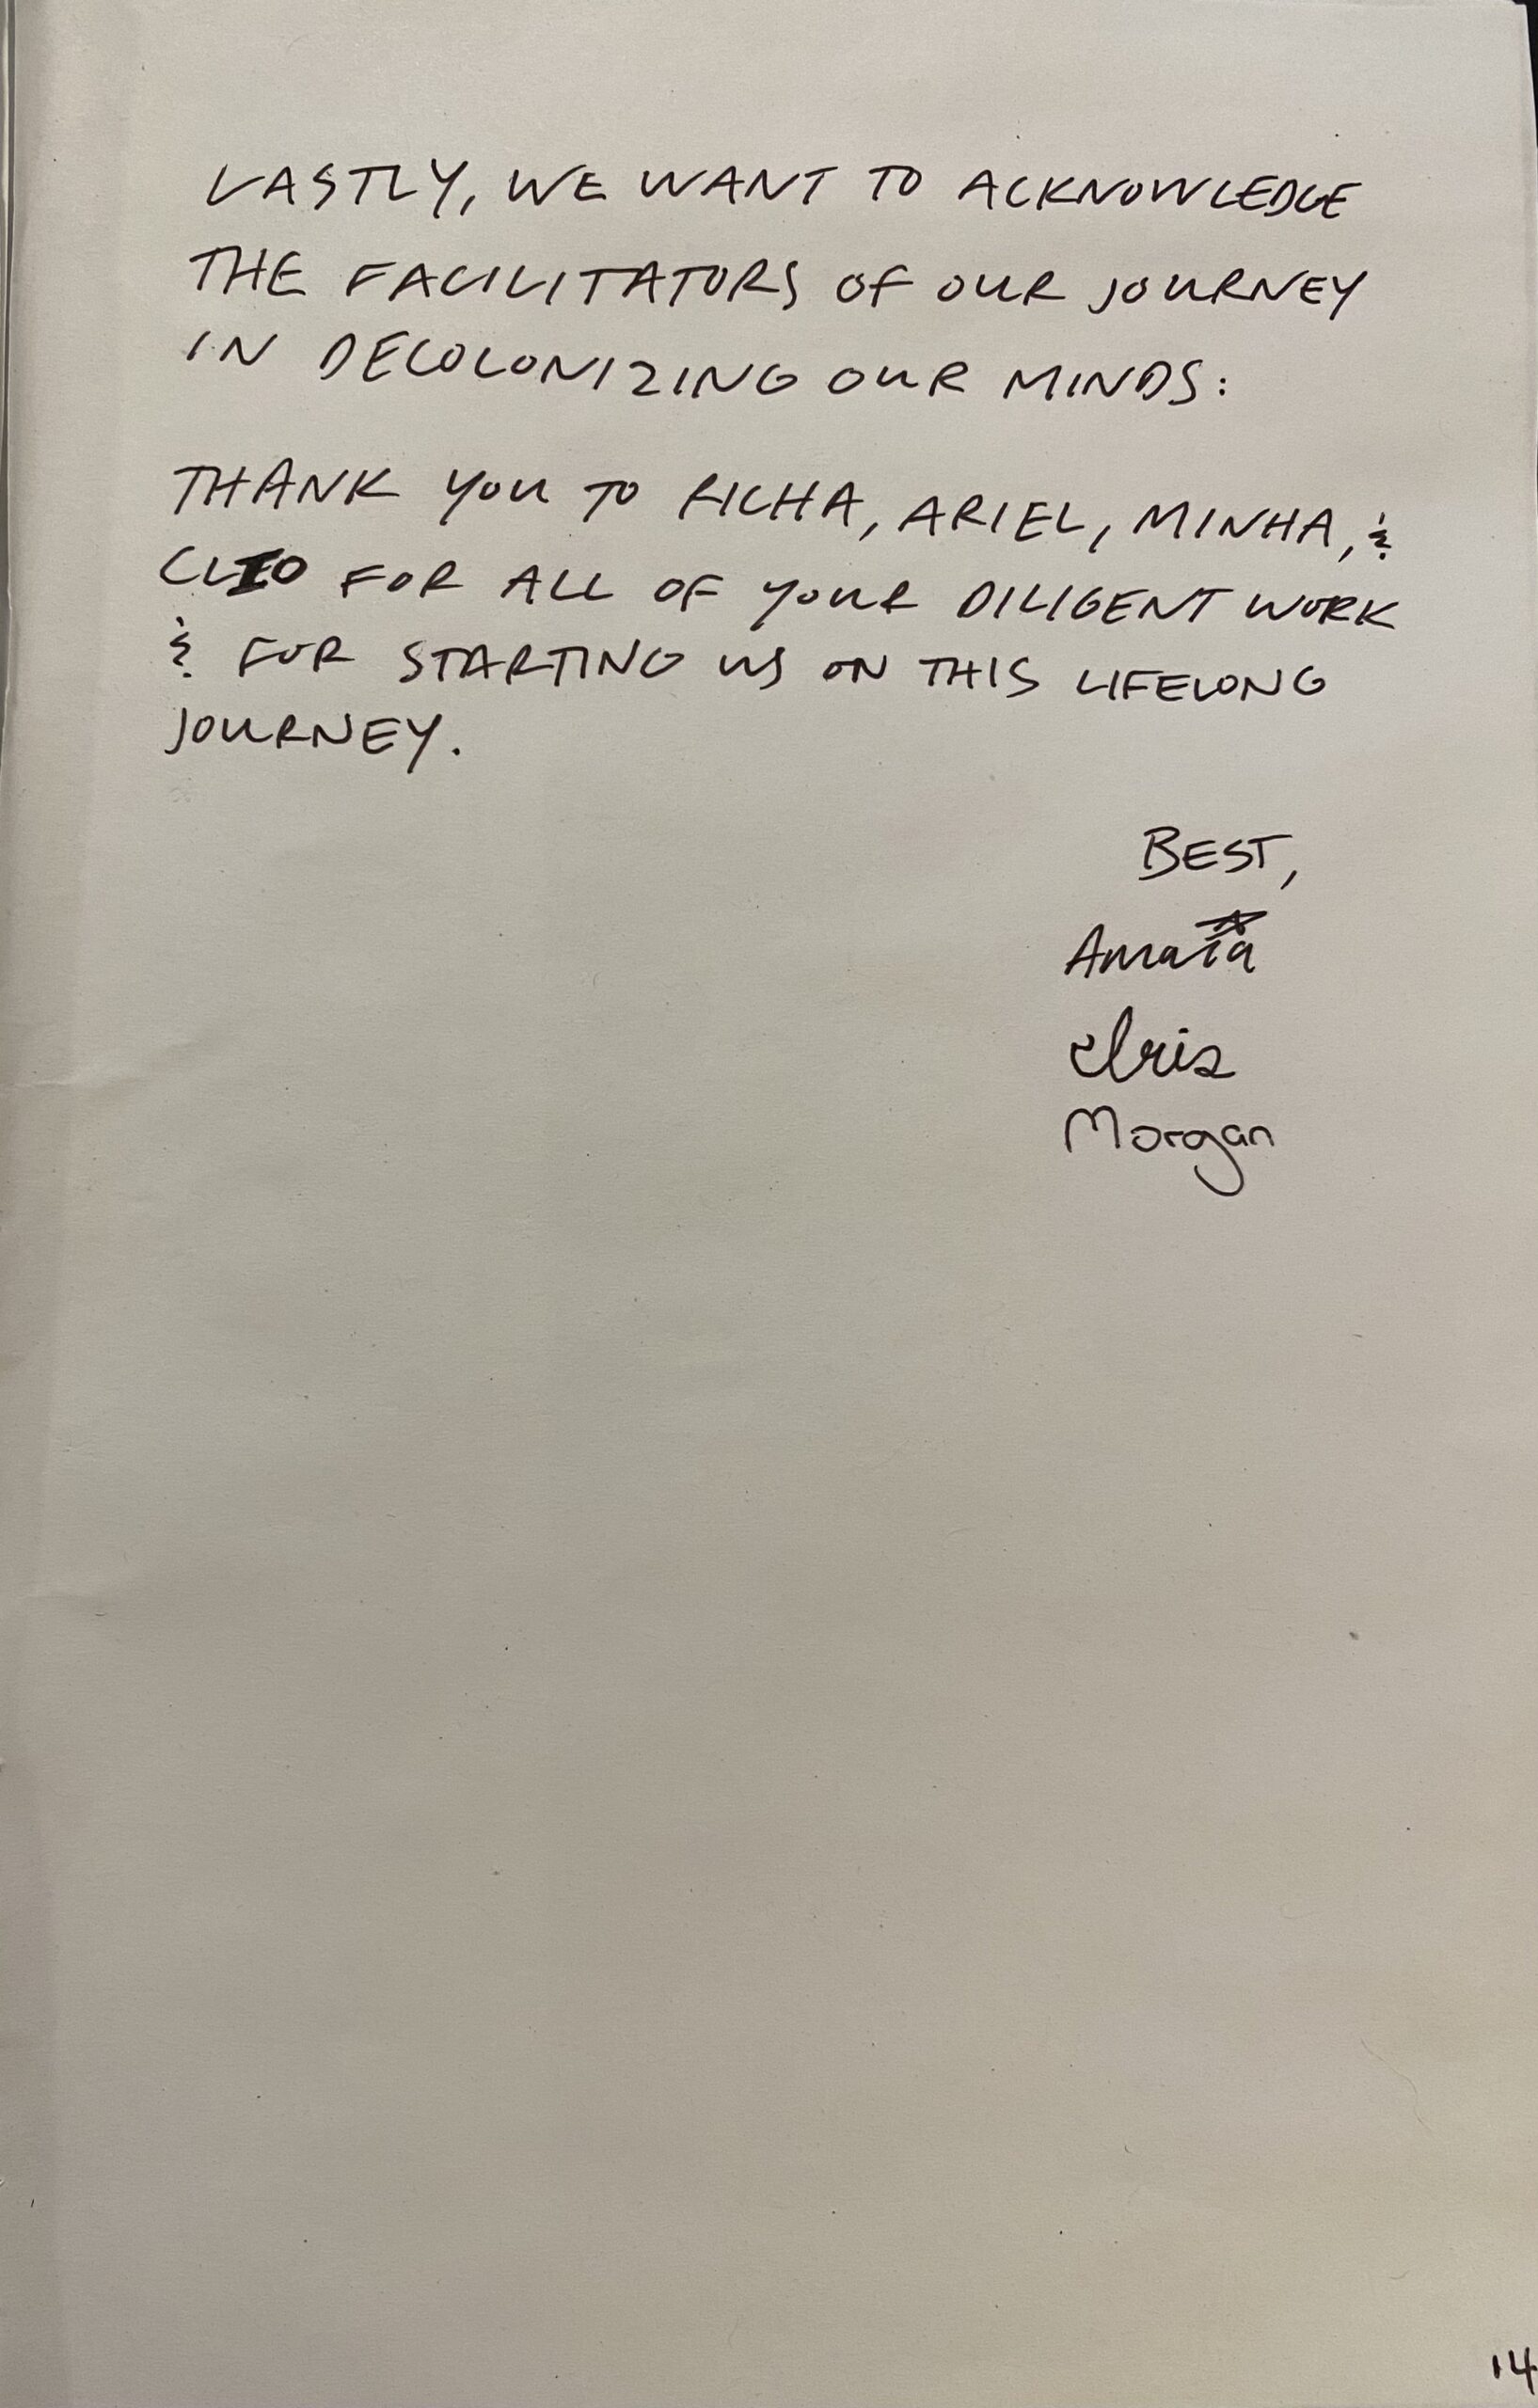 LASTLY, WE WANT TO ACKNOWLEDGE
THE FACILITATORS OF OUR JOURNEY
IN DECOLONIZING OUR MINDS:
THANK YOU TO RICHA, ARIEL, MINHA, &
CLIO FOR ALL OF YOUR DILIGENT WORK
& FOR STARTING US ON THIS LIFELONG
JOURNEY.
BEST,
Amaïa
Iris
Morgan
14